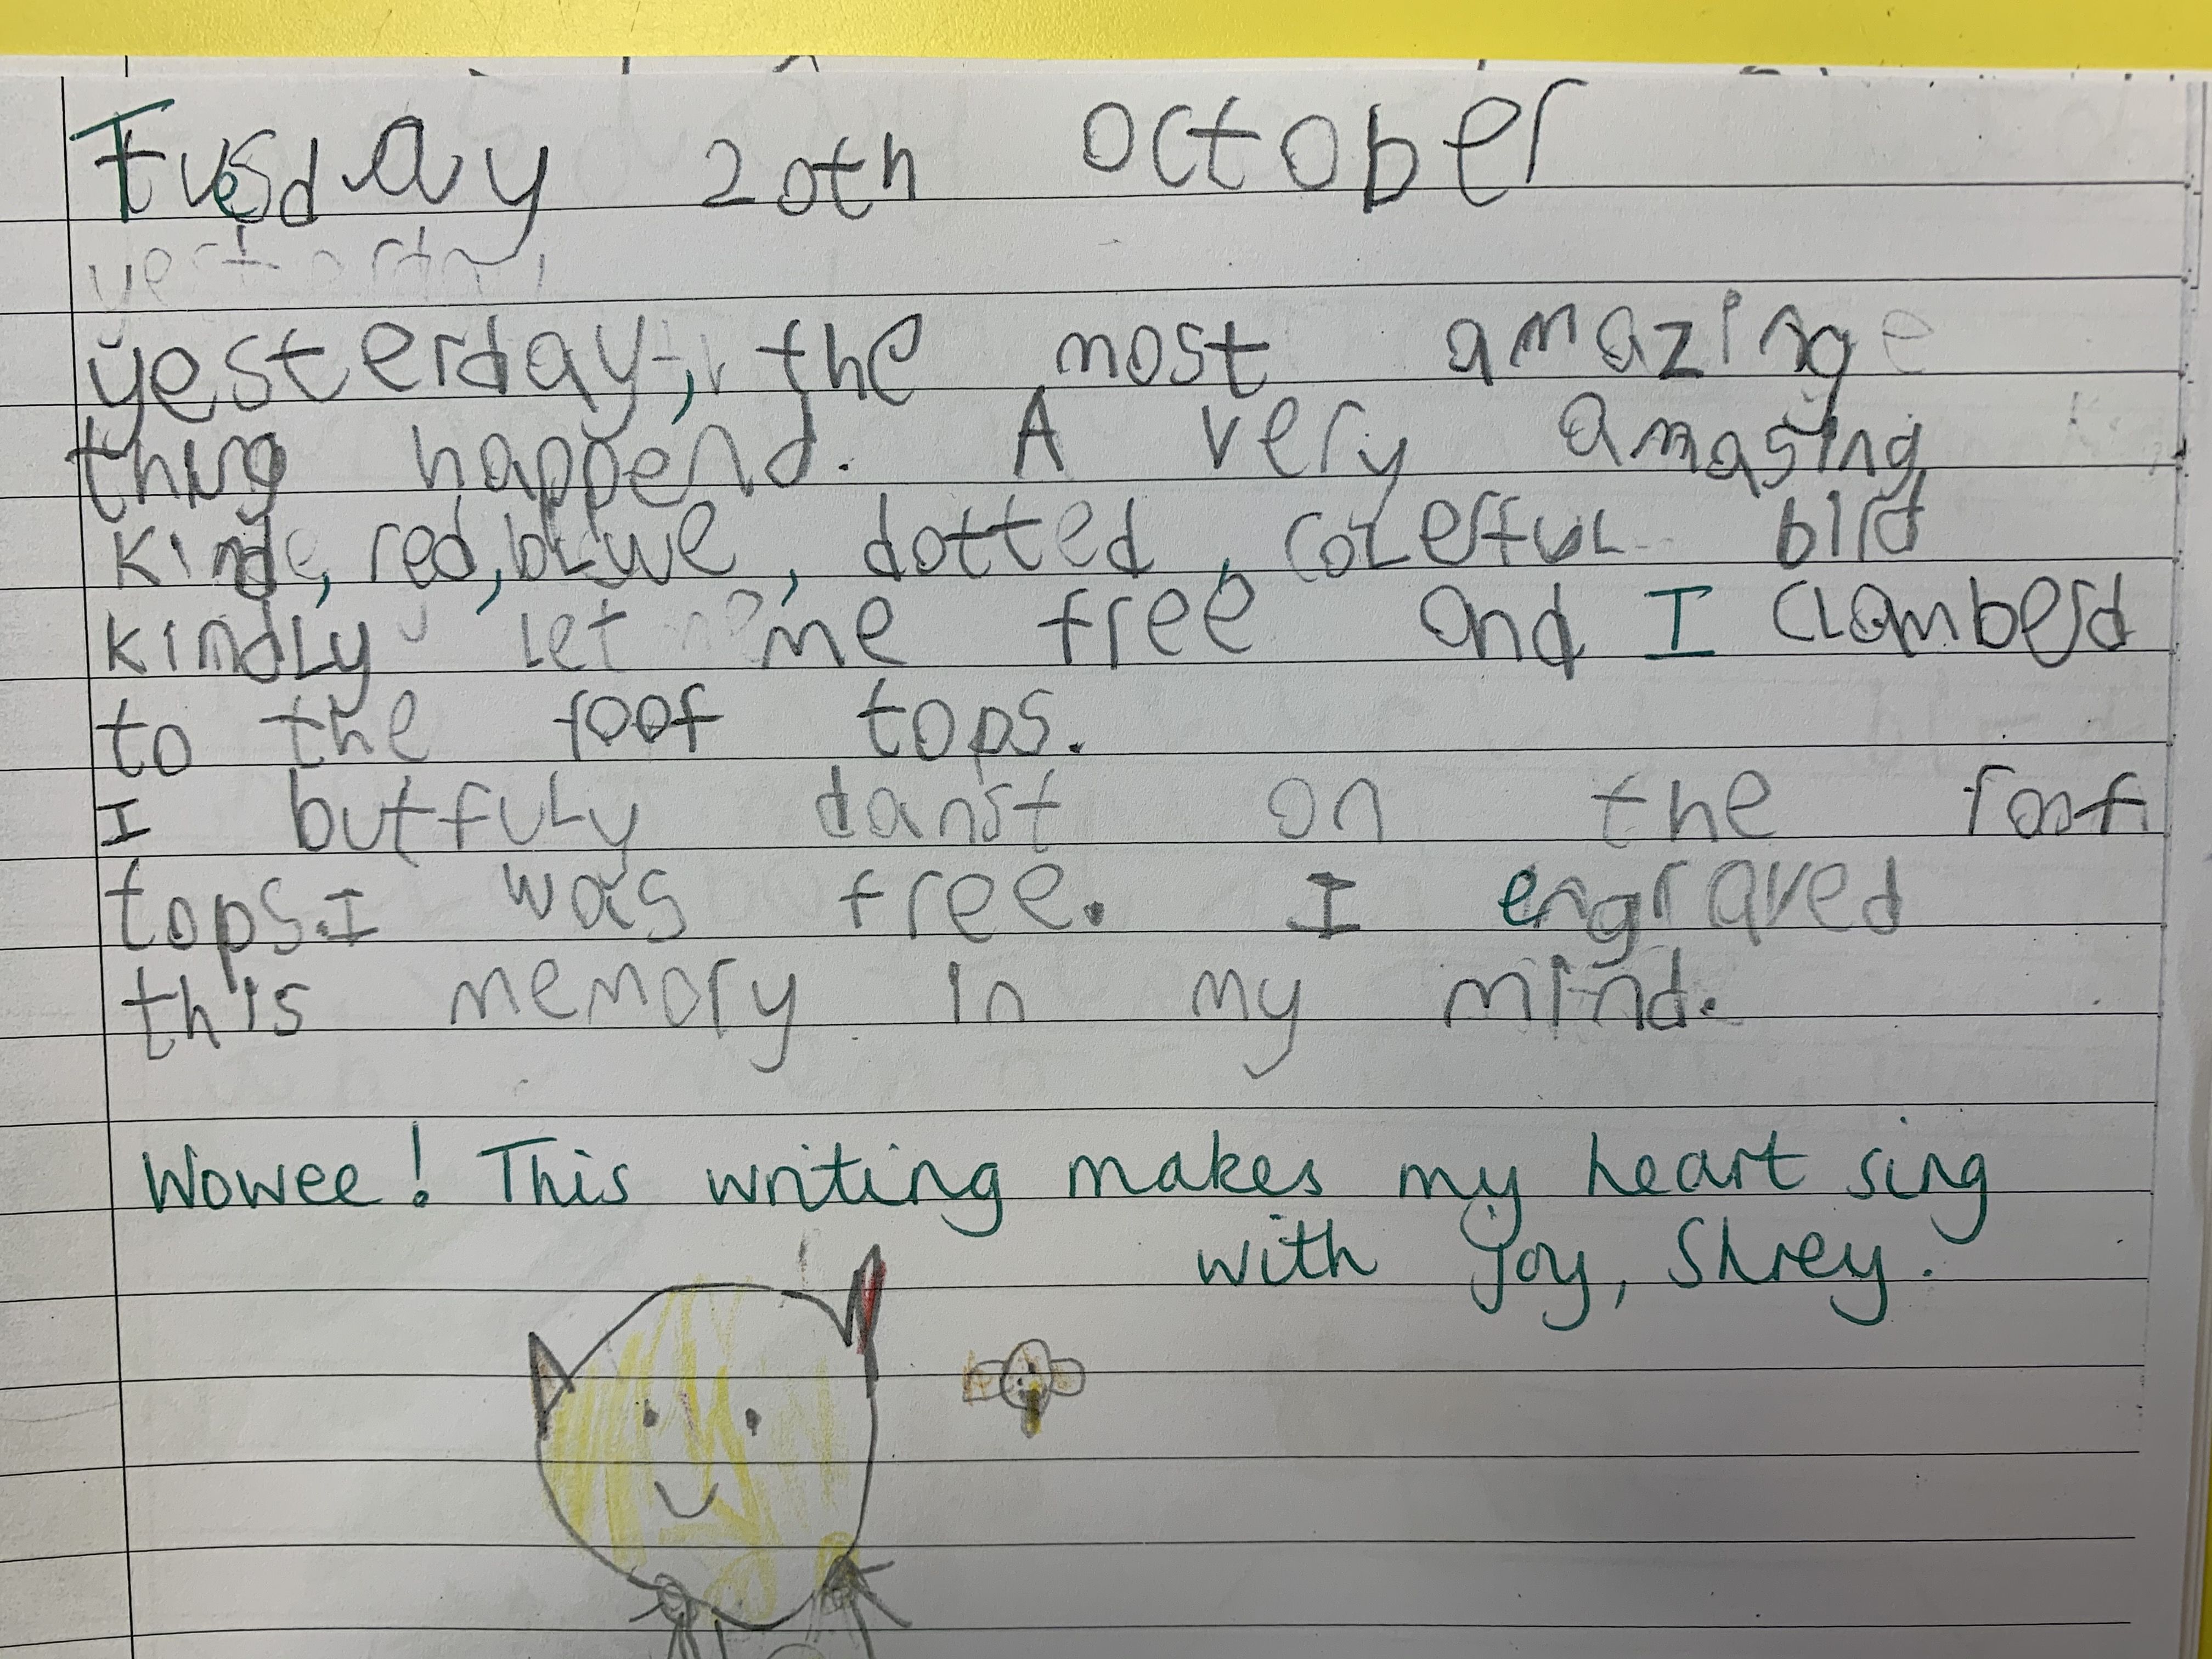 Tuesday 20th october
yesterday, the most amazing
thing happend. A very amasing
kind, red, bluwe, dotted, colerful bird
kindly let me free and I clamberd
to the roof tops.
I butfuly danst on the roof
tops. I was free. I engraved
this memory in my mind.
Wowee! This writing makes my heart sing
with joy, Shrey.